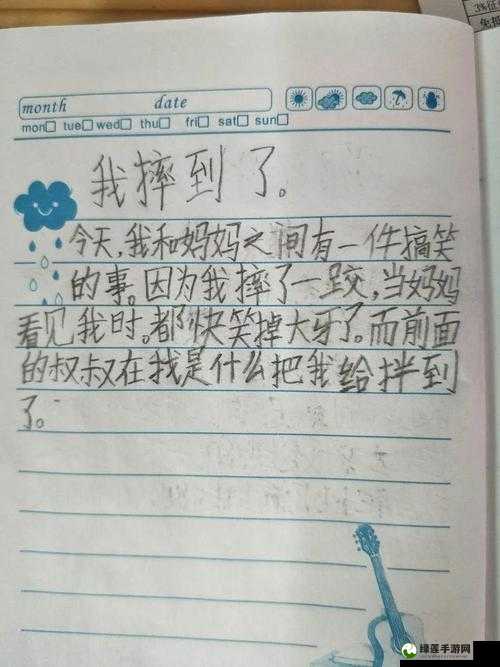 3%征
免抵
month date
mon tue wed thu fri sat sun
我摔到了。
今天,我和妈妈之间有一件搞笑
的事。因为我摔了一跤,当妈妈
看见我时。都快笑掉大牙了。而前面
的叔叔在找是什么把我给拌到
了。
绿莲手游网